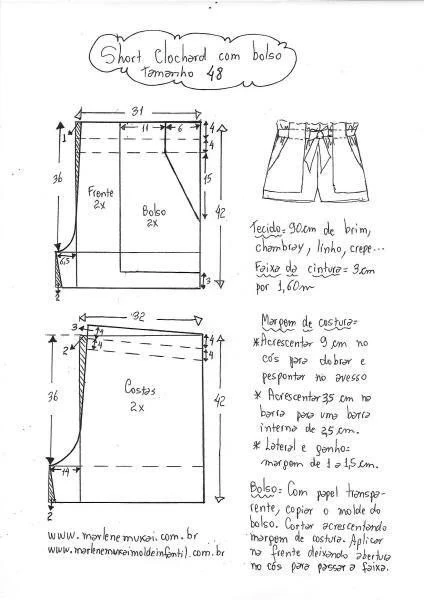 Short Clochard com bolso
Tamanho 48
31
11
6
1
4
4
36
15
Frente
2x
Bolso
2x
42
6,5
3
2
32
3
4
4
2
4
4
36
Costas
2x
42
14
2
www.marlenemukai.com.br
www.marlenemukaimoldeinfantil.com.br
Tecido= 90cm de brim,
chambray, linho, crepe...
Faixa da cintura= 3cm
por 1,60m
Margem de costura=
* Acrescentar 9 cm no
cós para dobrar e
pespontar no avesso
* Acrescentar 3,5 cm na
barra para uma barra
interna de 2,5 cm.
* Lateral e gancho=
margem de 1 a 1,5cm.
Bolso= Com papel transpa-
rente, copiar o molde do
bolso. Cortar acrescentando
margem de costura. Aplicar
na frente deixando abertura
no cós para passar a faixa.